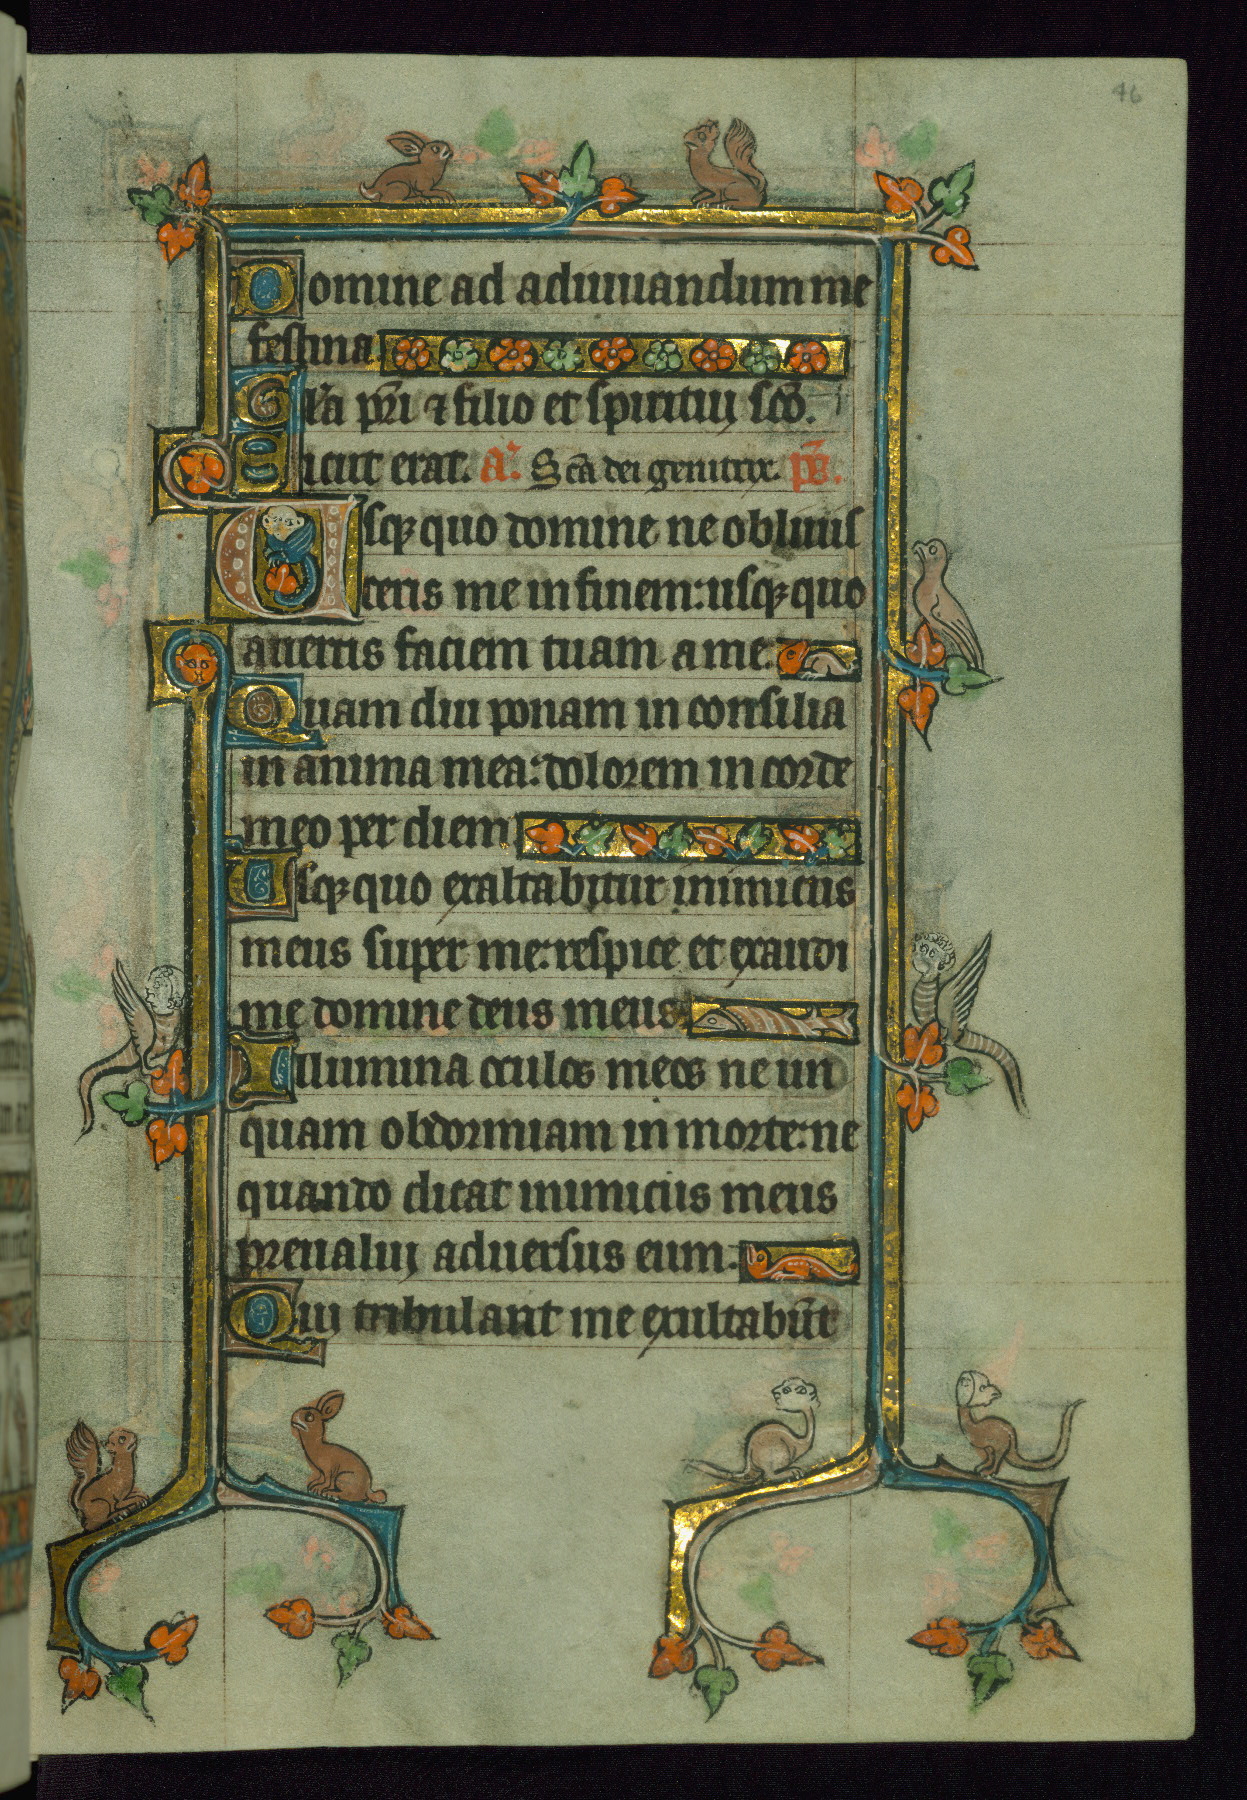 46
Domine ad adiuuandum me
festina
Gl̄a pr̄i ⁊ filio et spiritui sc̄o.
Sicut erat. Aͣ. Sc̄a dei genitrix. p̄s.
Usqꝫ quo domine ne obliuis
ceris me in finem: usqꝫ quo
auertis faciem tuam a me.
Quam diu ponam in consilia
in anima mea: dolorem in corde
meo per diem
Usqꝫ quo exaltabitur inimicus
meus super me: respice et exaudi
me domine deus meus.
Illumina oculos meos ne un
quam obdormiam in morte: ne
quando dicat inimicus meus
preualui aduersus eum:
Qui tribulant me exultabūt